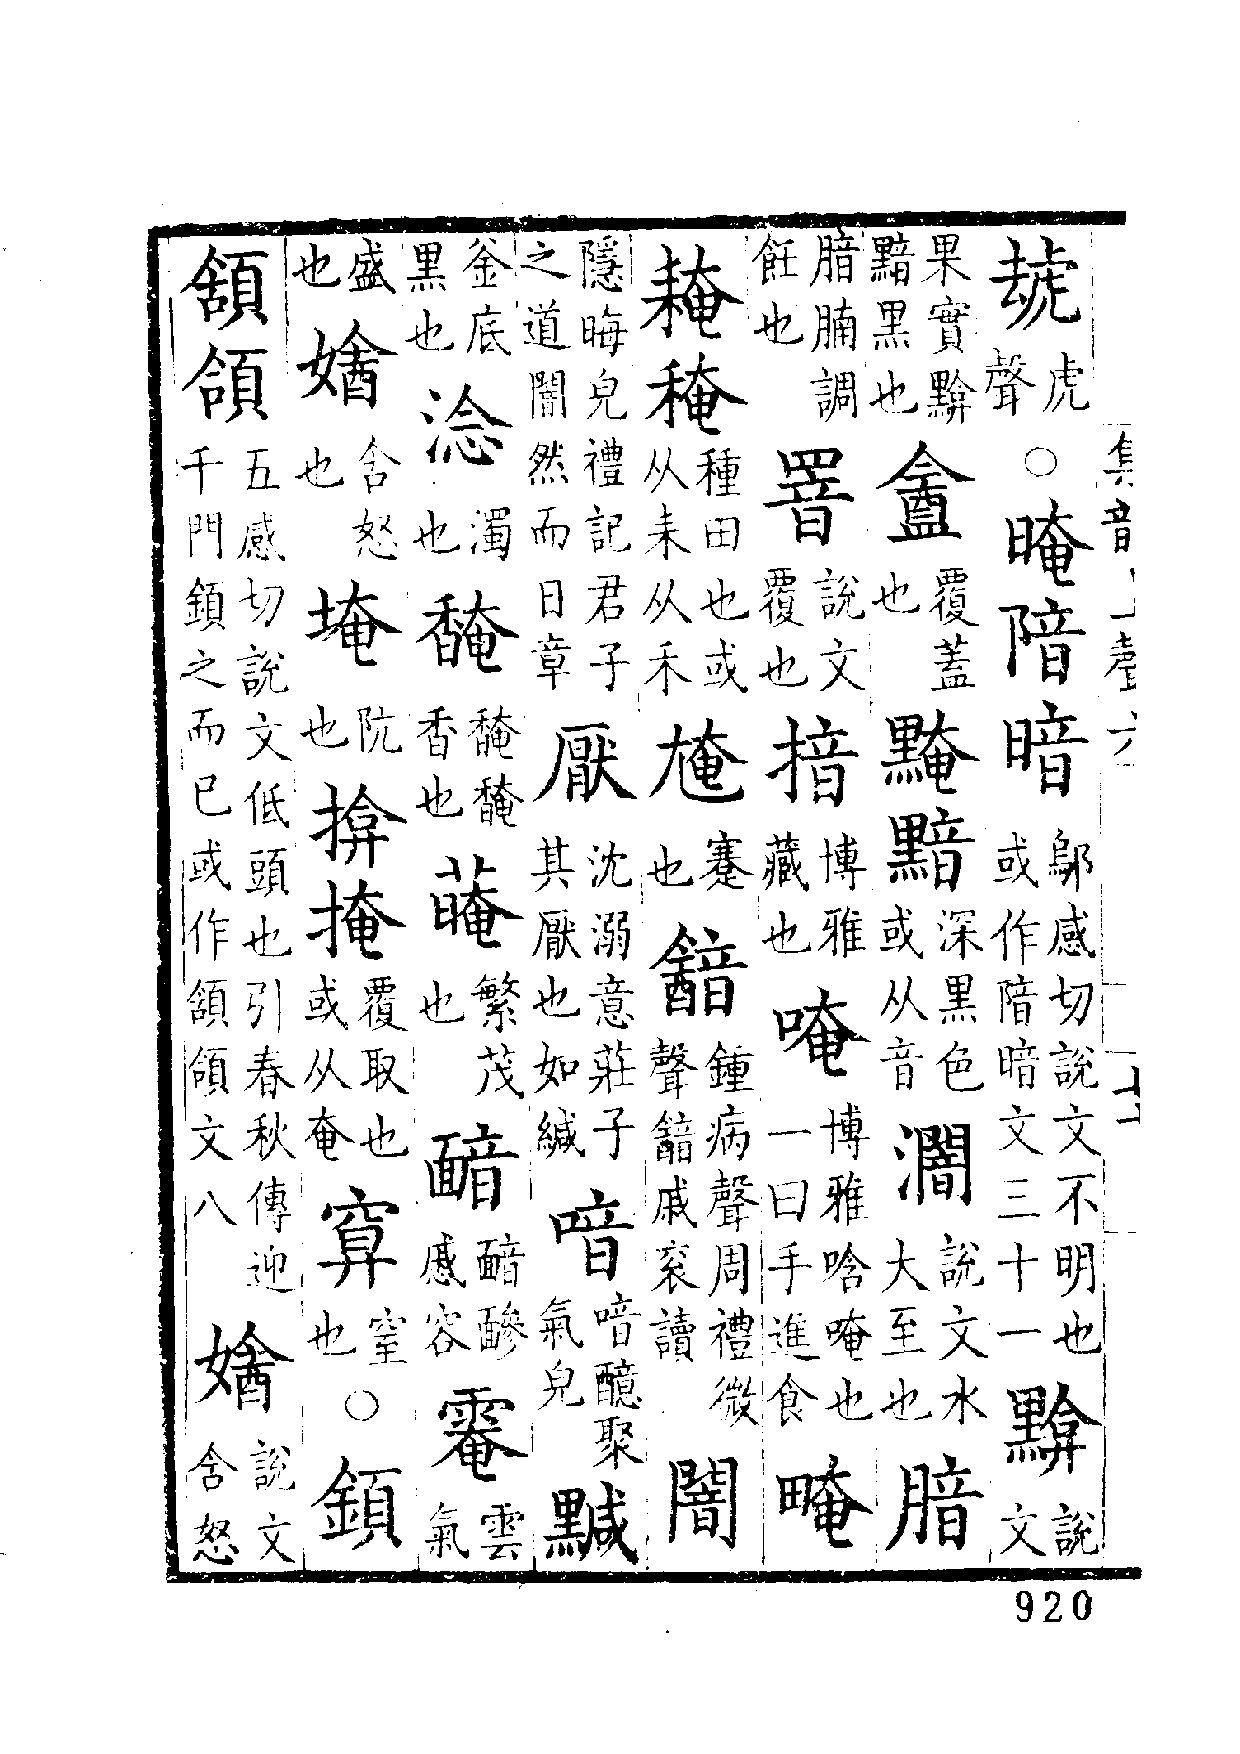 虎聲○晻隌暗鄔感切說文不明也或作隌暗文三十一黭說文
果實黭黯黑也盦覆蓋也黤黯深黑色或从音說文水大至也腤
腤腩調飪也罯說文覆也揞博雅藏也唵博雅唅唵也一曰手進食
䎨䅖種田也或从耒从禾蹇也韽鍾病聲周禮微聲韽戚衮讀闇
隱晦皃禮記君子之道闇然而日章厭沈溺意莊子其厭也如緘喑喑醷聚氣皃黬
釜底黑也淰濁也馣馣馣香也繁茂也慼容雲氣
盛也㜝含怒也埯阬也揜掩覆取也或从奄窒也○顉
頷五感切說文低頭也引春秋傳迎于門顉之而已或作頷文八㜝說文含怒
集韻上聲六
920